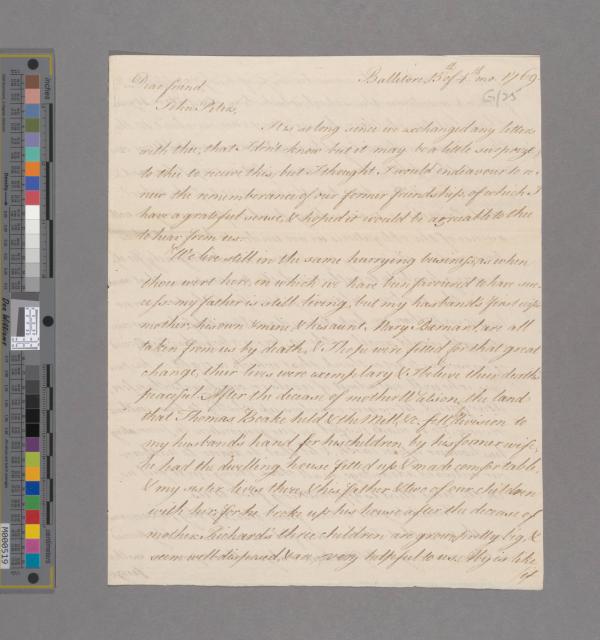 Ballitore 13th of 4th mo. 1769
G/25
Dear friend
John Peters,
It is so long since we exchanged any letters
with thee, that I don't know but it may be a little surprize
to thee to receive this, but I thought I would endeavour to re-
new the remembrance of our former friendship, of which I
have a grateful sense, & hoped it would be agreeable to thee
to hear from us.
We live still in the same hurrying business, as when
thou wert here, in which we have been favoured to have suc-
cess: my father is still living, but my husband's first wife's
mother, his own & mine, & his aunt, Mary Barnard, are all
taken from us by death, & I hope were fitted for that great
change, their lives were exemplary & I believe their deaths
peaceful. After the decease of mother Watson, the land
that Thomas Boake held & the Mill, &c. fell division to
my husband's hand for his children by his former wife,
he had the dwelling house fitted up & made comfortable,
& my sister lives there, & his father & two of our children
with her, for he broke up his house after the decease of
mother. Richard's three children are grown pretty big, &
seem well disposed, & are very helpful to us. My is like
of
inches
centimetres
M000519